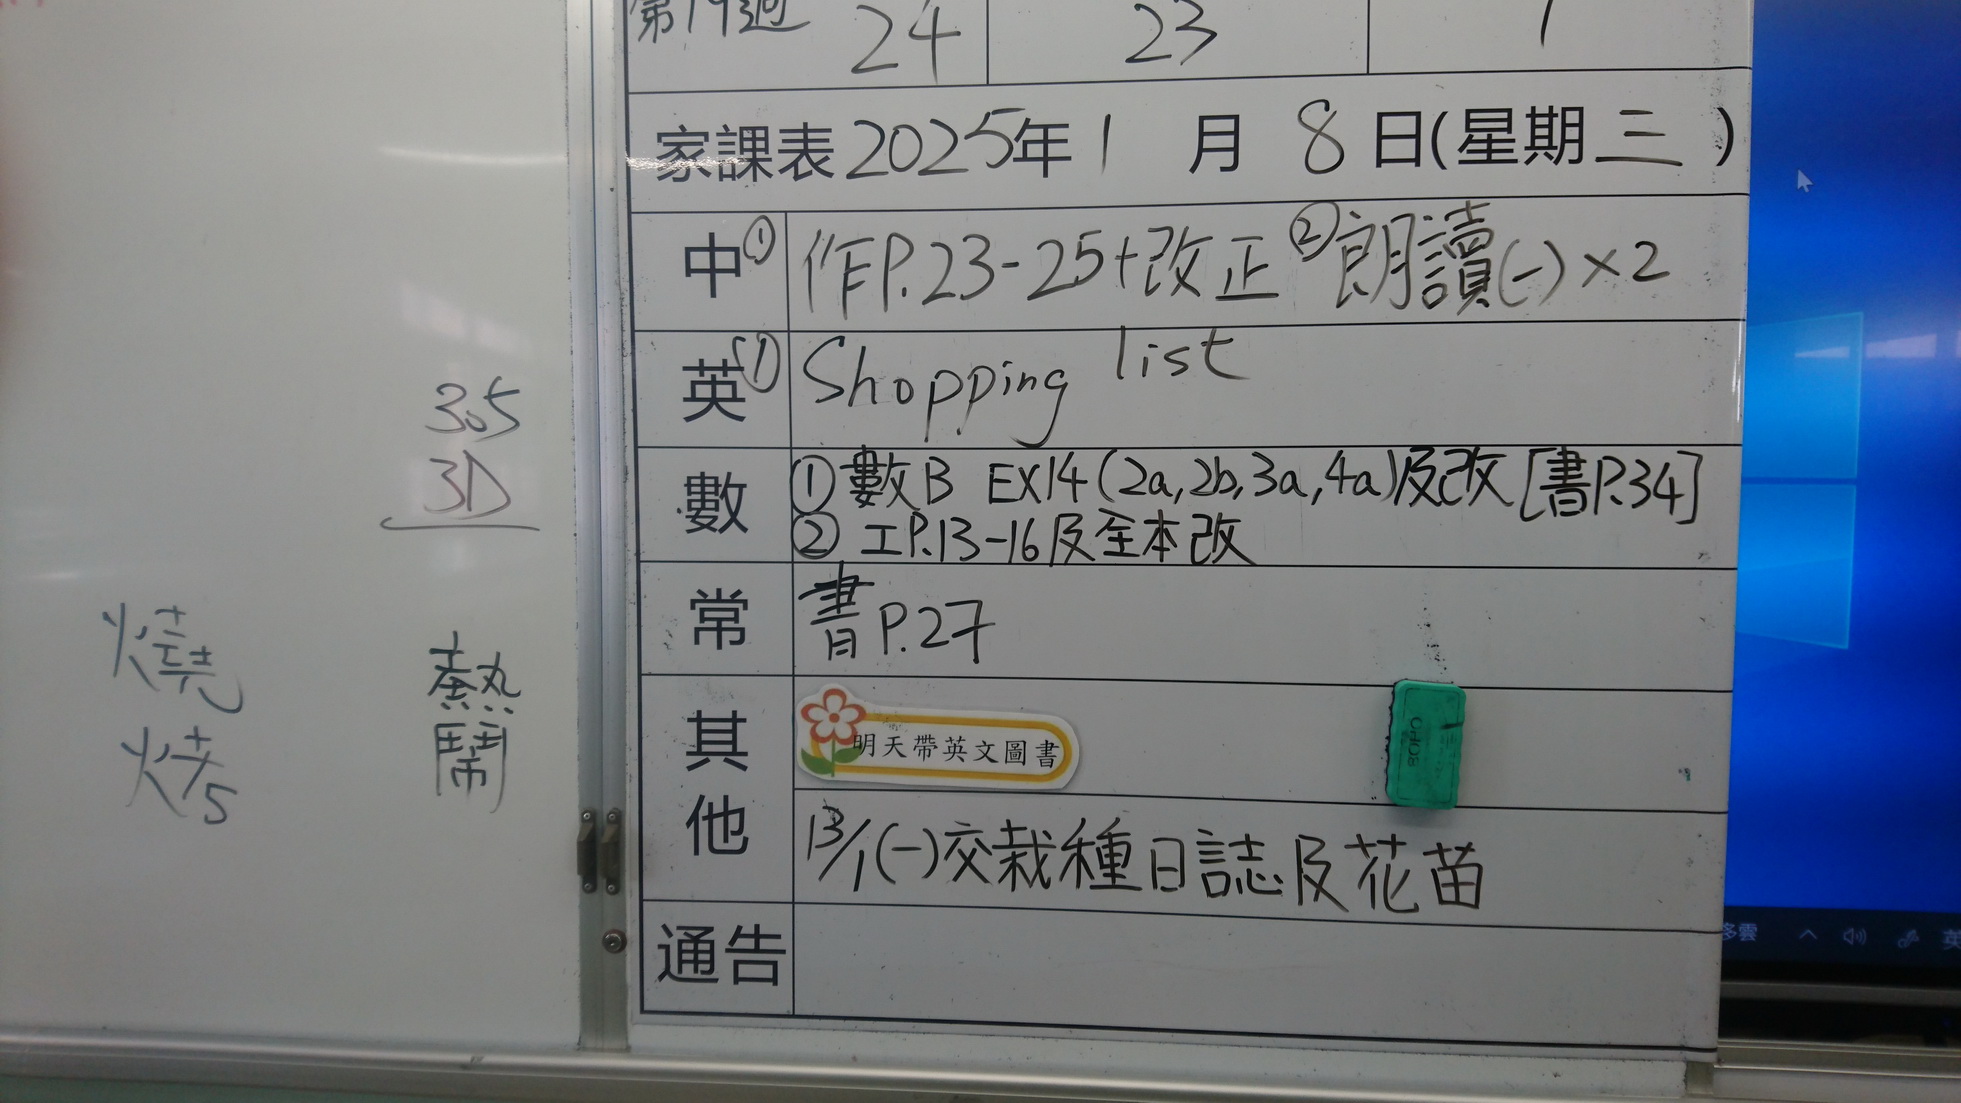 第19週 24 23 1
家課表 2025年 1 月 8 日(星期 三 )
中 ① 作P.23-25+改正 ② 朗讀(一)×2
英 ① Shopping list
數 ① 數B EX14 (2a, 2b, 3a, 4a)及改 [書P.34]
② 工P.13-16及全本改
常 書P.27
其他 明天帶英文圖書
13/1(一)交栽種日誌及花苗
通告
305
3D
熱鬧
燒
BOPO
多雲
英